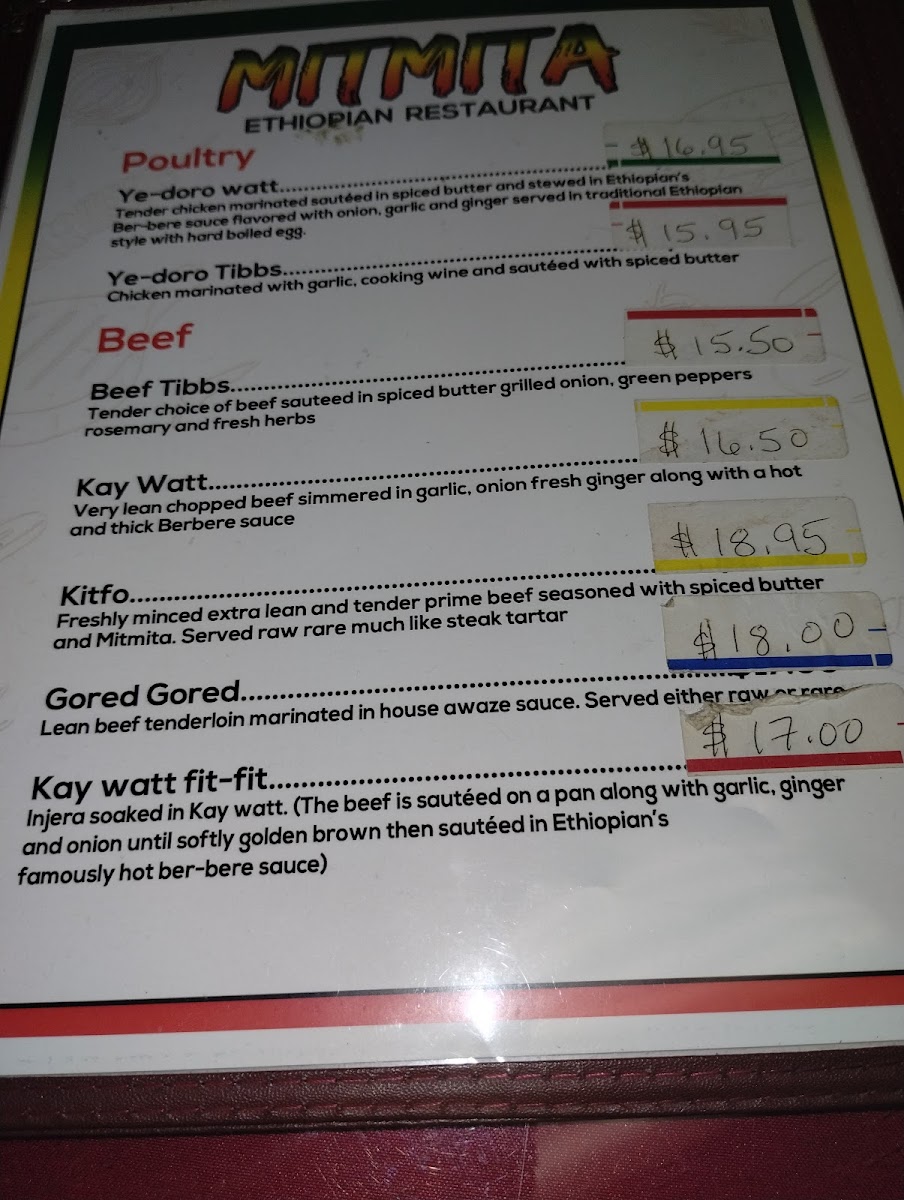 MITMITA
ETHIOPIAN RESTAURANT
Poultry
$ 16.95
Ye-doro watt
Tender chicken marinated sautéed in spiced butter and stewed in Ethiopian's
Ber-bere sauce flavored with onion, garlic and ginger served in traditional Ethiopian
style with hard boiled egg.
$ 15.95
Ye-doro Tibbs
Chicken marinated with garlic, cooking wine and sautéed with spiced butter
Beef
$ 15.50
Beef Tibbs
Tender choice of beef sauteed in spiced butter grilled onion, green peppers
rosemary and fresh herbs
$ 16.50
Kay Watt
Very lean chopped beef simmered in garlic, onion fresh ginger along with a hot
and thick Berbere sauce
$ 18.95
Kitfo
Freshly minced extra lean and tender prime beef seasoned with spiced butter
and Mitmita. Served raw rare much like steak tartar
$ 18.00
Gored Gored
Lean beef tenderloin marinated in house awaze sauce. Served either raw or rare
$ 17.00
Kay watt fit-fit
Injera soaked in Kay watt. (The beef is sautéed on a pan along with garlic, ginger
and onion until softly golden brown then sautéed in Ethiopian's
famously hot ber-bere sauce)